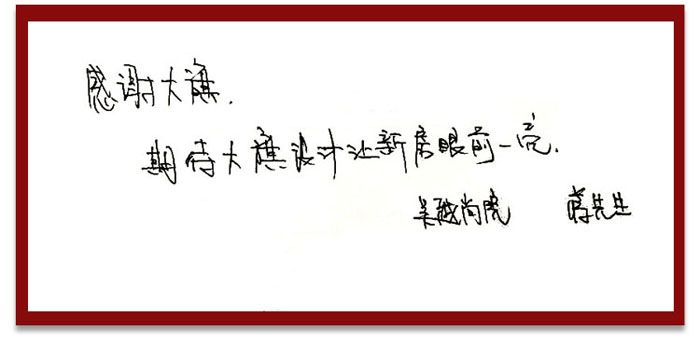 感谢大旗.
期待大旗设计让新房眼前一亮.
吴越尚院 蒋先生